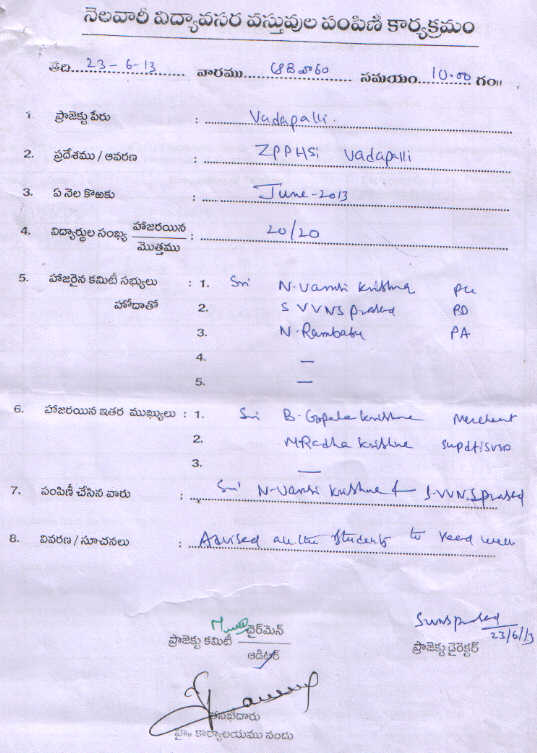 నెలవారీ విద్యావసర వస్తువుల పంపిణీ కార్యక్రమం
తేది 23-6-13 వారము ఆదివారం సమయం 10.00 గం॥
1. ప్రాజెక్టు పేరు : Vadapalli.
2. ప్రదేశము / ఆవరణ : ZPPHSi Vadapalli
3. ఏ నెల కొఱకు : June-2013
4. విద్యార్థుల సంఖ్య హాజరయిన / మొత్తము : 20/20
5. హాజరైన కమిటీ సభ్యులు : 1. Sri N. Vamsi Krishna
హోదాతో 2. S V V N S Prasad PD
3. N. Rambabu PA
4. —
5. —
6. హాజరయిన ఇతర ముఖ్యులు : 1. Sri B. Gopala Krishna Merchant
2. M Radha Krishna
3. —
7. పంపిణీ చేసిన వారు : Sri N. Vamsi Krishna & S.VVNS Prasad
8. వివరణ / సూచనలు : Advised all the students to read well
చైర్‌మెన్
ప్రాజెక్టు కమిటీ
ఆడిటర్
23/6/13
ప్రాజెక్టు డైరెక్టర్
కార్యాలయము నందు